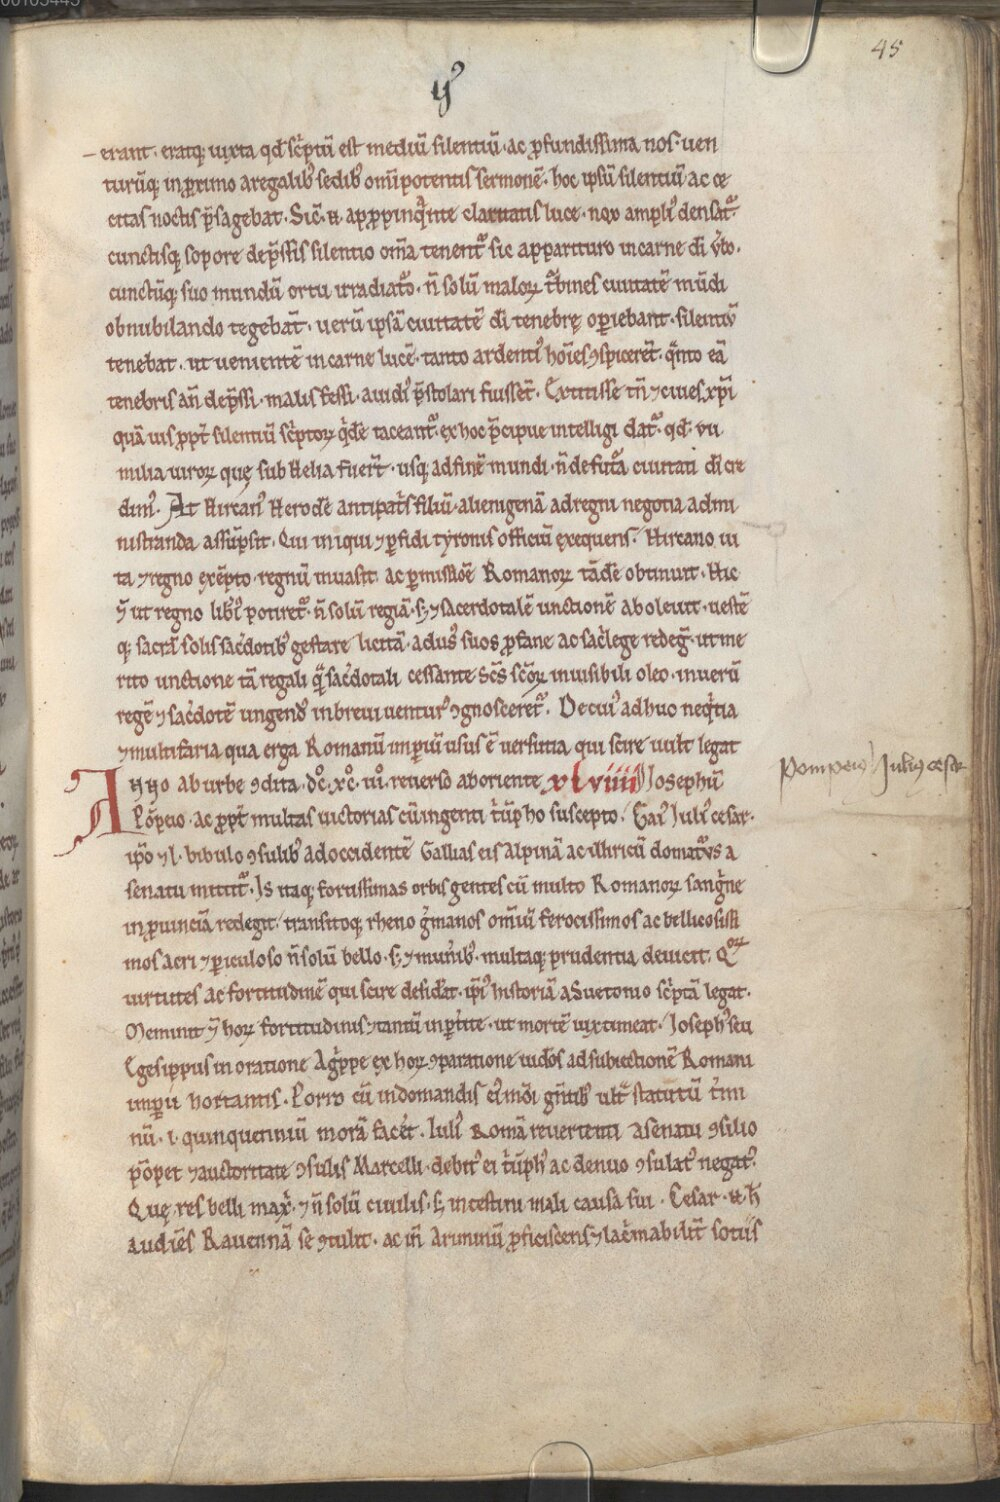 45
ij
erant. eratq; iuxta qđ sc̄ptū est mediū silentiū. ac ꝓfundissima nox. uen
turūq; in ꝓximo a regalib; sedib; om̄ipotentis sermonē. hoc ipsū silentiū ac ce
citas noctis p̄sagebat. Sic̄ .n. apꝓpinq̄nte claritatis luce. nox ampli᷒ densat᷑.
cunctisq; sopore dep̄ssis silentio om̄a tenent᷑ sic apparituro in carne dī ūbo.
cunctūq; suo mundū ortu irradiat᷒o. n̄ solū maloꝝ t᷑bines ciuitatē mūdi
obnubilando tegebāt. uerū ipsā ciuitatē dī tenebrę oꝑiebant. silentiū
tenebat. ut uenientē in carne lucē. tanto ardenti᷒ hōīes ꝯspicerēt. q̄nto eā
tenebris an̄ dep̄ssi. malis fessi. auidi᷒ p̄stolari fuissēt. Extitisse tn̄ ⁊ ciues xp̄i
quāuis ꝓpt̄ silentiū sc̄ptoꝝ q̄dē taceant᷑. ex hoc p̄cipue intelligi dat᷑. qđ uii
milia uiroꝝ quę sub Helia fuer̄t. usq; ad finē mundi. n̄ defut᷑a ciuitati dī cre
dim᷒. At Hircan᷒ Herodē antipat̄s filiū. alienigenā ad regni negotia admi
nistranda assūpsit. Qui iniqui ⁊ ꝑfidi tyronis officiū exequens. Hircano ui
ta ⁊ regno exēpto. regnū inuasit. ac ꝑmissiōe Romanoꝝ tādē obtinuit. Hic
ū ut regno lib̄i᷒ potiret᷑. n̄ solū regiā. s; ⁊ sacerdotalē unctionē aboleuit. uestē
q; sacrā solis sac̄dotib; gestare licitā. ad us᷒ suos ꝓfane ac sac̄lege redeḡ. ut me
rito unctione tā regali q̄ sac̄dotali cessante sc̄s sc̄oꝝ inuisibili oleo. in uerū
regē ⁊ sac̄dotē ungend᷒ in breui uentur᷒ ꝯgnosceret᷑. De cui᷒ adhuc neq̄tia
⁊ multifaria qua erga Romanū imꝑiū usus ē uersutia. qui scire uult legat
Anno ab urbe ꝯdita. dc̊. xc̊. iii̊. reuerso ab oriente xlviiii Josephū
Pōpeio. ac ꝓpt̄ multas uictorias cū ingenti t᷑ūpho suscepto. Gai᷒ Juli᷒ cesar.
ip̄o ⁊ l. bibulo ꝯsulib; ad occidentē Gallias cisalpinā ac illiricū domat᷑us a
senatu mittit᷑. Is itaq; fortissimas orbis gentes cū multo Romanoꝝ sanḡne
in ꝓuinciā redegit. transitoq; rheno ḡmanos om̄iū ferocissimos ac bellicosissi
mos acri ⁊ ꝑiculoso n̄ solū bello. s; ⁊ mun̄ib;. multaq; prudentia deuicit. Qoꝝ
uirtutes ac fortitudinē qui scire desid̄at. ip̄i᷒ historiā a Suetonio sc̄ptā legat.
Meminit ū hoꝝ fortitudinis ⁊ tantū inꝑt̄ite. ut mortē uix timeat. Joseph᷒ seu
Egesippus in oratione Aḡppe ex hoꝝ ꝯparatione iudeos ad subiectionē Romani
imꝑii hortantis. Porro cū in domandis ei᷒mōi ḡntib; ult᷑ statutū t̄mi
nū. i. quinquenniū morā facēt. Juli᷒ Romā reuertenti a senatu ꝯsilio
pōpei ⁊ auctoritate ꝯsulis Marcelli. debit᷒ ei t᷑ūph᷒ ac denuo ꝯsulat᷒ negat᷒.
Que res belli max̄. ⁊ n̄ solū ciuilis. s; intestini mali causa fui. Cesar .n. h̄
audiēs Rauennā se ꝯtulit. ac in̄ Ariminū ꝓficiscens ⁊ lac̄mabilit᷑ sotiis
Pompeius Julius cesar